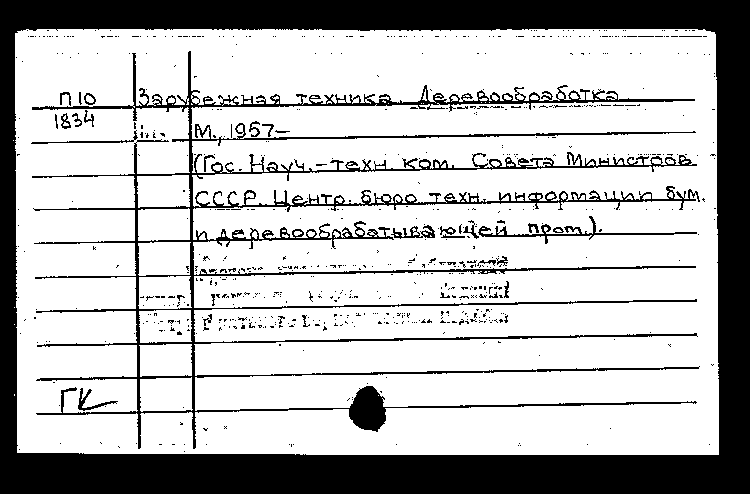 П10 Зарубежная техника. Деревообработка
1834
М., 1957–
(Гос. Науч.-техн. ком. Совета Министров
СССР. Центр. бюро техн. информации бум.
и деревообрабатывающей пром.).
ГК